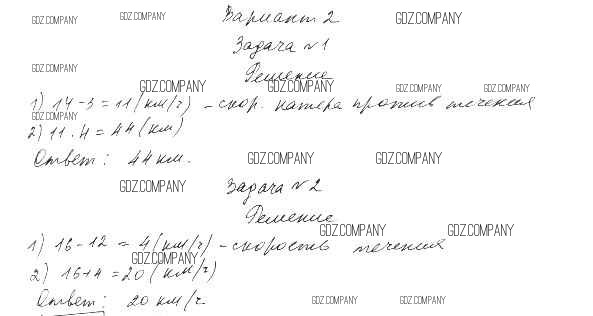 GDZ.COMPANY GDZ.COMPANY Вариант 2 GDZ.COMPANY
Задача №1
GDZ.COMPANY
Решение
GDZ.COMPANY GDZ.COMPANY GDZ.COMPANY GDZ.COMPANY
1) 14-3=11(км/ч) - скор. катера против течения
GDZ.COMPANY
2) 11.4=44(км)
Ответ: 44 км. GDZ.COMPANY GDZ.COMPANY
GDZ.COMPANY Задача №2
Решение
GDZ.COMPANY GDZ.COMPANY
1) 16-12=4(км/ч) - скорость течения
GDZ.COMPANY
2) 16+4=20(км/ч)
Ответ: 20 км/ч. GDZ.COMPANY GDZ.COMPANY